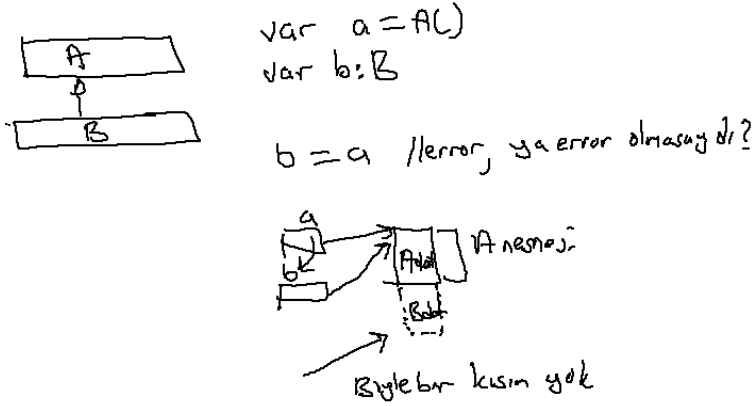 A
B
var a = A()
var b : B
b = a //error, ya error olmasaydı?
a
b
A nesnesi
Böyle bir kısım yok